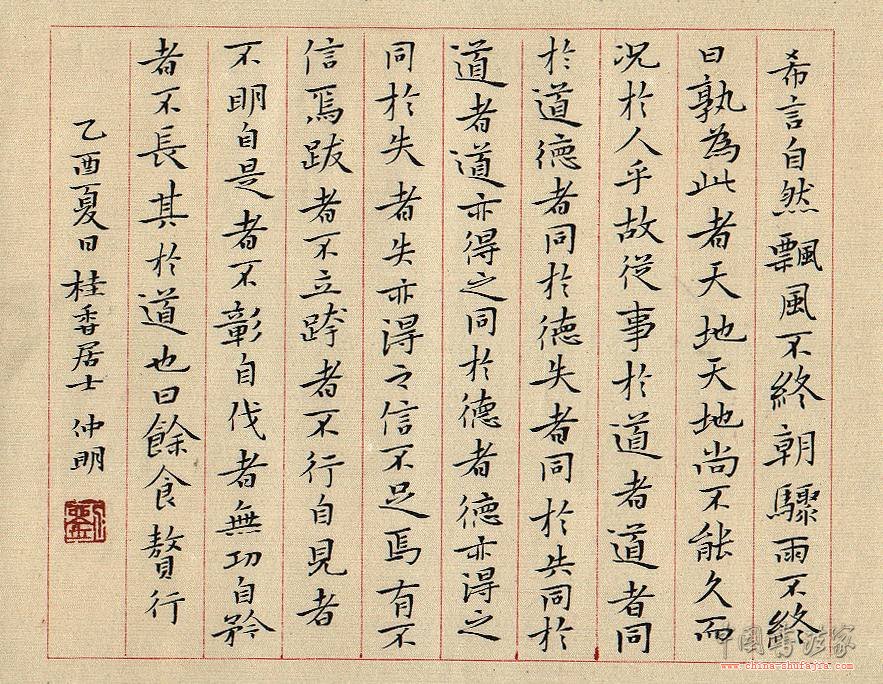 希言自然飄風不終朝驟雨不終
日孰為此者天地天地尚不能久而
况於人乎故從事於道者道者同
於道德者同於德失者同於失同於
道者道亦得之同於德者德亦得之
同於失者失亦得之信不足焉有不
信焉跂者不立跨者不行自見者
不明自是者不彰自伐者無功自矜
者不長其於道也曰餘食贅行
乙酉夏日桂香居士仲明
中國書法家
www.china-shufajia.com